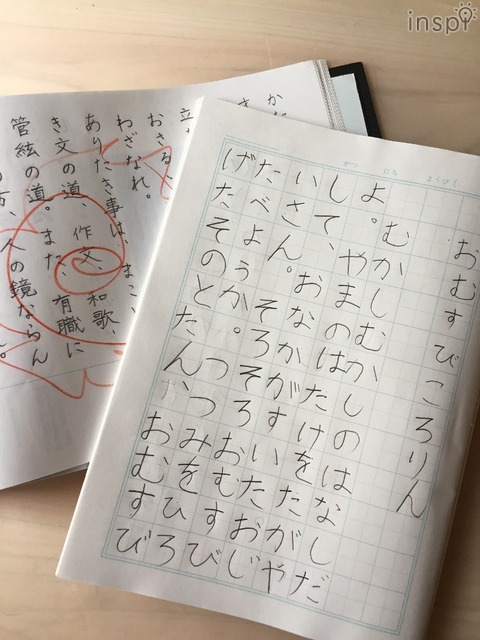 inspi
がつ にち ようび
おむすびころりん
むかしむかしのはなしだ
よ。やまのはたけをたがや
して、おなかがすいたおじ
いさん。そろそろおむすび
たべようか。つつみをひろ
げたそのとたんかおむすび
か
さ
立
おさる
わざなれ。
ありたき事は、まこ
き文の道、作文、和歌、
管絃の道。また、有職に
の方、人の鏡ならん